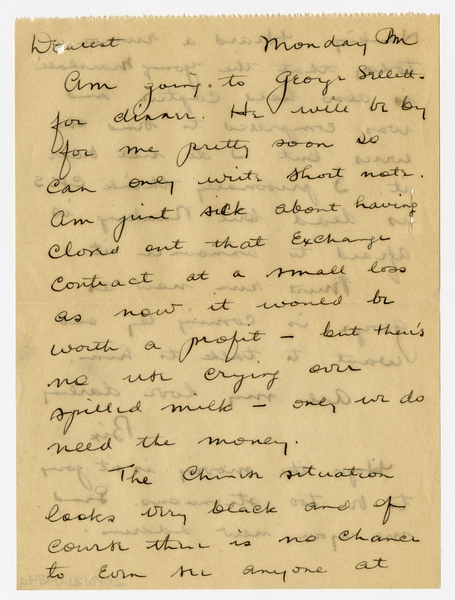 Dearest Monday PM
Am going to George Sellett
for dinner. He will be by
for me pretty soon so
can only write short note.
Am just sick about having
closed out that Exchange
Contract at a small loss
as now it would be
worth a profit – but there's
no use crying over
spilled milk – only we do
need the money.
The Chinese situation
looks very black and of
course there is no chance
to even see anyone at